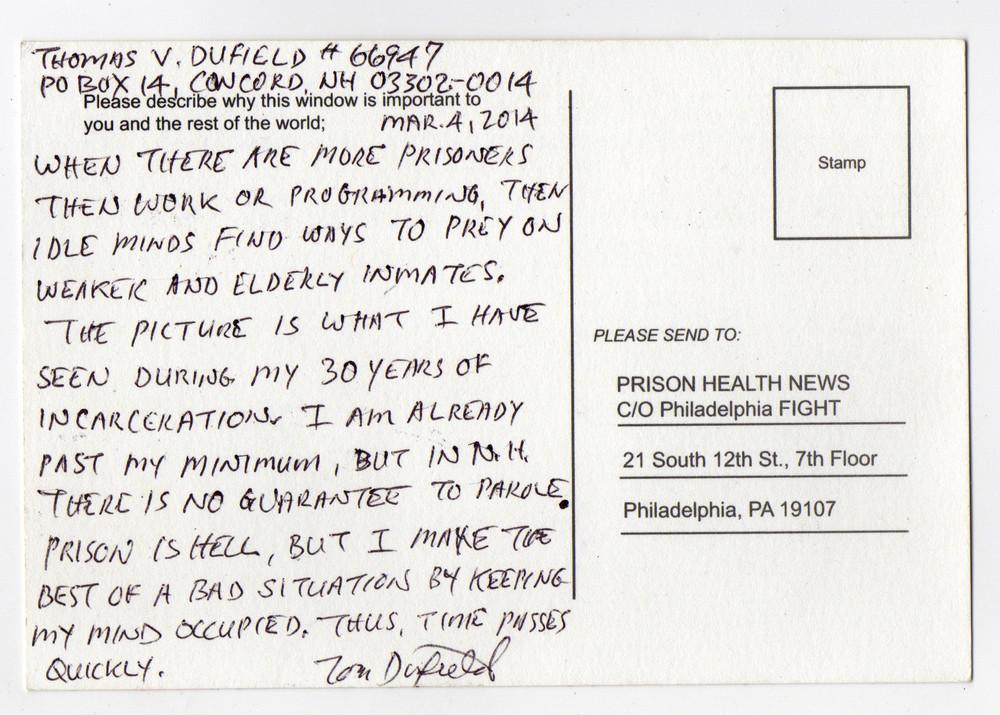 THOMAS V. DUFIELD # 66947
PO BOX 14, CONCORD, NH 03302-0014
Please describe why this window is important to
you and the rest of the world;
MAR. 4, 2014
WHEN THERE ARE MORE PRISONERS
THEN WORK OR PROGRAMMING, THEN
IDLE MINDS FIND WAYS TO PREY ON
WEAKER AND ELDERLY INMATES.
THE PICTURE IS WHAT I HAVE
SEEN DURING MY 30 YEARS OF
INCARCERATION. I AM ALREADY
PAST MY MINIMUM, BUT IN N.H.
THERE IS NO GUARANTEE TO PAROLE.
PRISON IS HELL, BUT I MAKE THE
BEST OF A BAD SITUATION BY KEEPING
MY MIND OCCUPIED. THUS, TIME PASSES
QUICKLY.
Tom Dufield
Stamp
PLEASE SEND TO:
PRISON HEALTH NEWS
C/O Philadelphia FIGHT
21 South 12th St., 7th Floor
Philadelphia, PA 19107